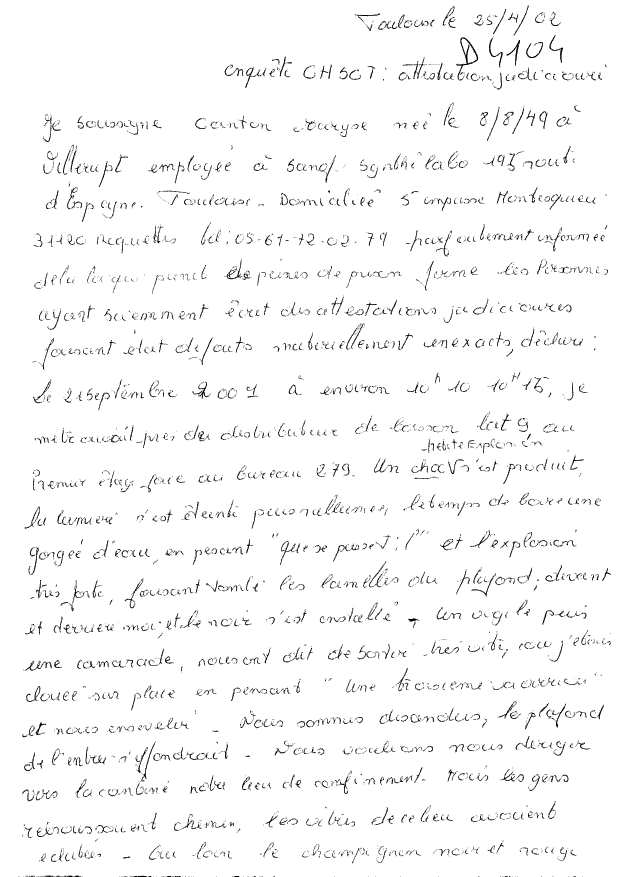 Toulouse le 25/4/02
D4104
enquête CHSCT: attestation judiciaire
Je soussigne Canton Maryse née le 8/8/49 à
Villerupt employée à Sanofi Synthélabo 195 route
d'Espagne. Toulouse - Domiciliée 5 impasse Montesquieu
31120 Roquettes tel: 05-61-72-02-79 parfaitement informée
de la loi qui punit de peines de prison ferme les Personnes
ayant sciemment écrit des attestations judiciaires
faisant état de faits matériellement inexacts, déclare:
Le 21 septembre 2001 à environ 10h10 10H15, je
me trouvait près du distributeur de boisson bat 9 au
petite Explosion
Premier étage face au bureau 279. Un choc V s'est produit,
la lumière s'est éteinte puis rallumée, le temps de boire une
gorgée d'eau, en pensant "que se passe t-il" et l'explosion
très forte, faisant tombé les lamelles du plafond, devant
et derrière moi, et le noir s'est installé - Un vigile puis
une camarade, nous ont dit de sortir très vite, car j'étais
clouée sur place en pensant " Une troisième va arriver"
et nous ensevelir - Nous sommes descendus, le plafond
de l'entrée s'effondrait - Nous voulions nous diriger
vers la cantine notre lieu de confinement. Mais les gens
rebroussaient chemin, les vitres de ce lieu avaient
éclatées - Au loin le champignon noir et rouge